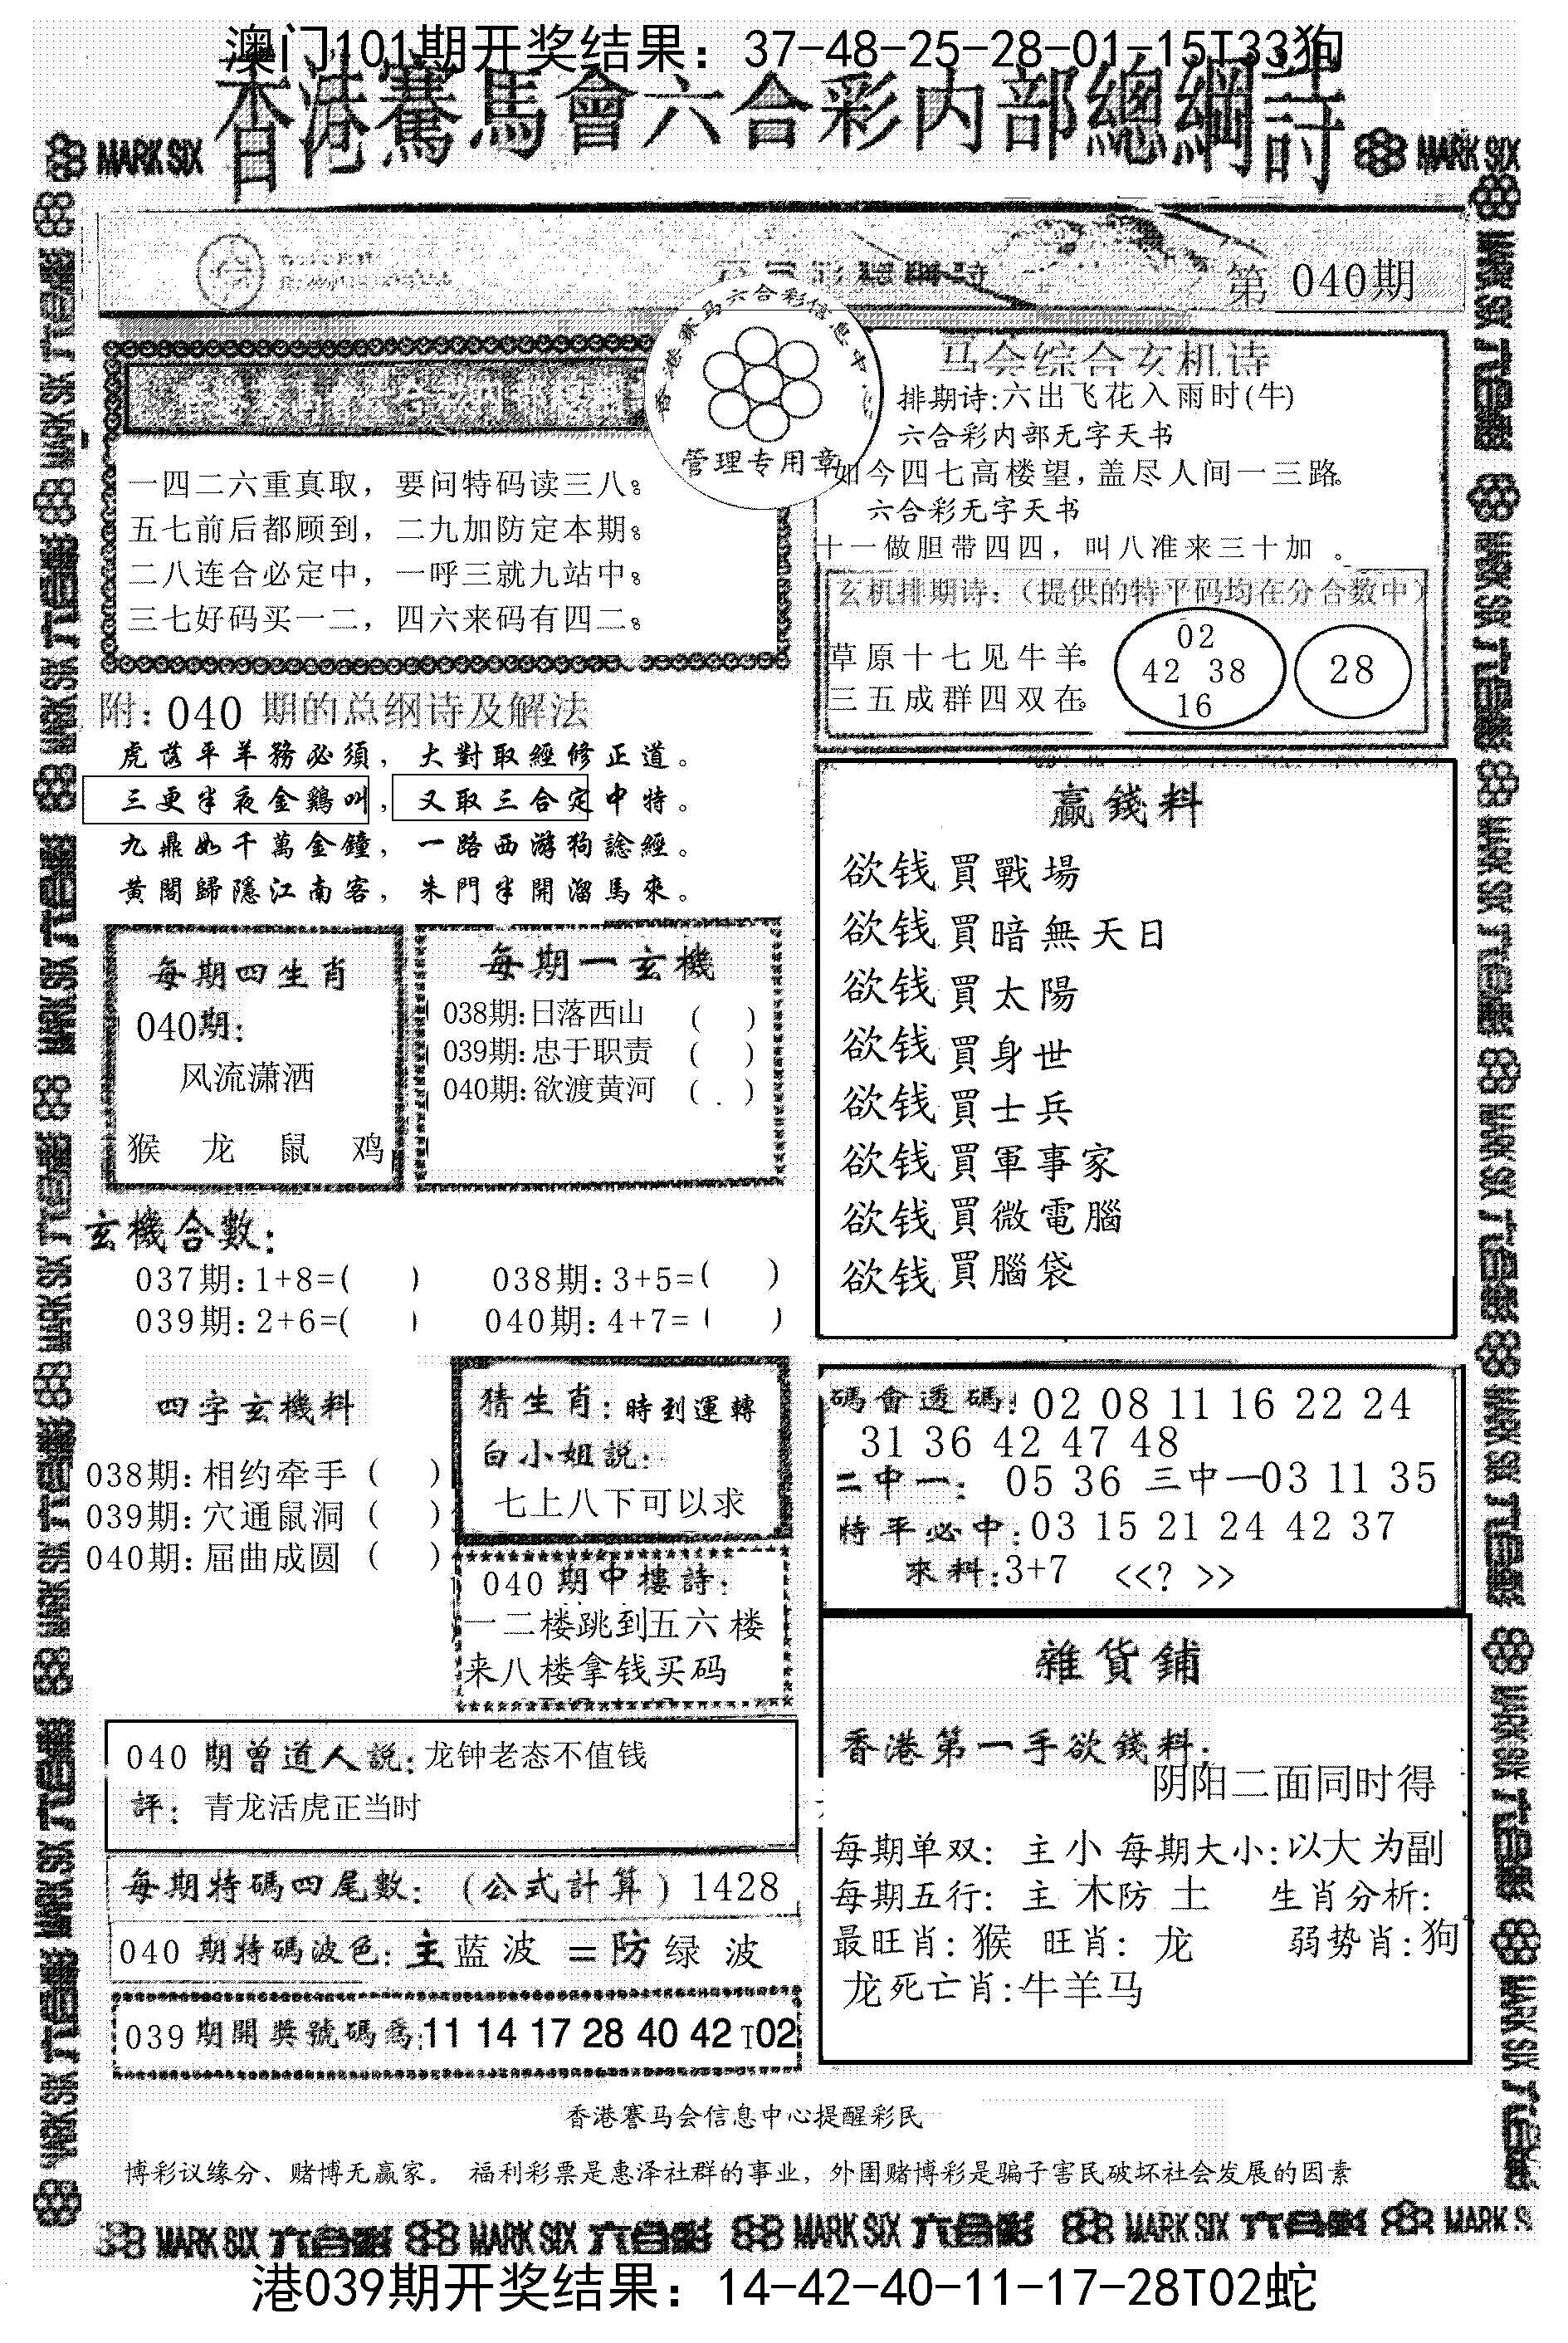 澳门101期开奖结果：37-48-25-28-01-15T33狗
香港賽馬會六合彩内部總綱詩
MARK SIX
MARK SIX
第 040期
香港赛马六合彩信息中
管理专用章
一四二六重真取，要问特码读三八。
五七前后都顾到，二九加防定本期。
二八连合必定中，一呼三就九站中。
三七好码买一二，四六来码有四二。
马会综合玄机诗
排期诗:六出飞花入雨时(牛)
六合彩内部无字天书
如今四七高楼望,盖尽人间一三路。
六合彩无字天书
十一做胆带四四，叫八准来三十加 。
玄机排期诗：（提供的特平码均在分合数中）
草原十七见牛羊。
三五成群四双在。
02
42 38
16
28
附：040 期的总纲诗及解法
虎落平羊務必須，大對取經修正道。
三更半夜金鷄叫，又取三合定中特。
九鼎如千萬金鐘，一路西游狗諗經。
黄閣歸隱江南客，朱門半開溜馬來。
每期四生肖
040期:
风流潇洒
猴 龙 鼠 鸡
每期一玄機
038期:日落西山 ( )
039期:忠于职责 ( )
040期:欲渡黄河 ( )
赢錢料
欲钱買戰場
欲钱買暗無天日
欲钱買太陽
欲钱買身世
欲钱買士兵
欲钱買軍事家
欲钱買微電腦
欲钱買腦袋
玄機合數:
037期:1+8=( ) 038期:3+5=( )
039期:2+6=( ) 040期:4+7=( )
四字玄機料
038期:相约牵手 ( )
039期:穴通鼠洞 ( )
040期:屈曲成圆 ( )
猜生肖:時到運轉
白小姐説:
七上八下可以求
040期中樓詩:
一二楼跳到五六楼
来八楼拿钱买码
碼會透碼: 02 08 11 16 22 24
31 36 42 47 48
二中一: 05 36 三中一03 11 35
特平必中:03 15 21 24 42 37
來料:3+7 <<? >>
040 期曾道人説:龙钟老态不值钱
評: 青龙活虎正当时
每期特碼四尾數: (公式計算) 1428
040 期特碼波色:主蓝波 =防绿 波
039期開獎號碼爲:11 14 17 28 40 42 T02
雜貨鋪
香港第一手欲錢料:
阴阳二面同时得
每期单双: 主小 每期大小:以大为副
每期五行: 主 木防 土 生肖分析:
最旺肖: 猴 旺肖: 龙 弱势肖:狗
龙死亡肖:牛羊马
香港赛马会信息中心提醒彩民
博彩议缘分、赌博无赢家。 福利彩票是惠泽社群的事业，外围赌博彩是骗子害民破坏社会发展的因素
MARK SIX 六合彩 MARK SIX 六合彩 MARK SIX 六合彩 MARK SIX 六合彩 MARK S
港039期开奖结果：14-42-40-11-17-28T02蛇